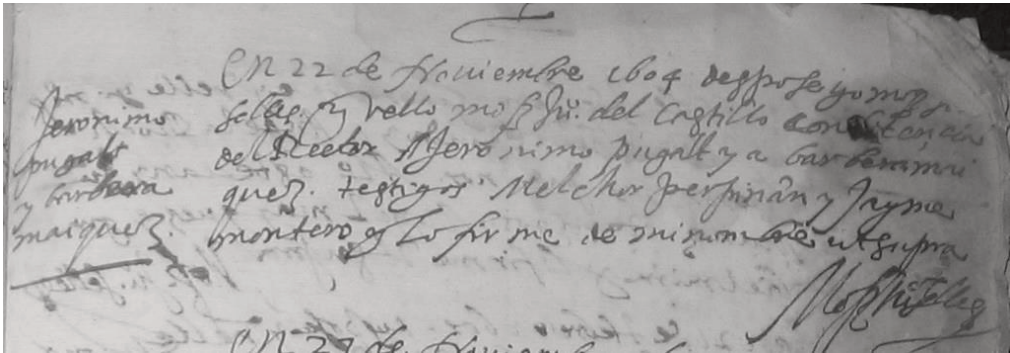 Jeronimo
pugalt
y barbera
maiquez.
En 22 de Noviembre 1604 despose yo mosen
Selles y vello mosen Ju. del Castillo con licencia
del Rector A Jeronimo pugalt y a barbera mai
quez. testigos Melchor perpiñan y Jayme
montero y lo firme de mi nombre ut supra
Mosen Selles
En 27 de Noviembre